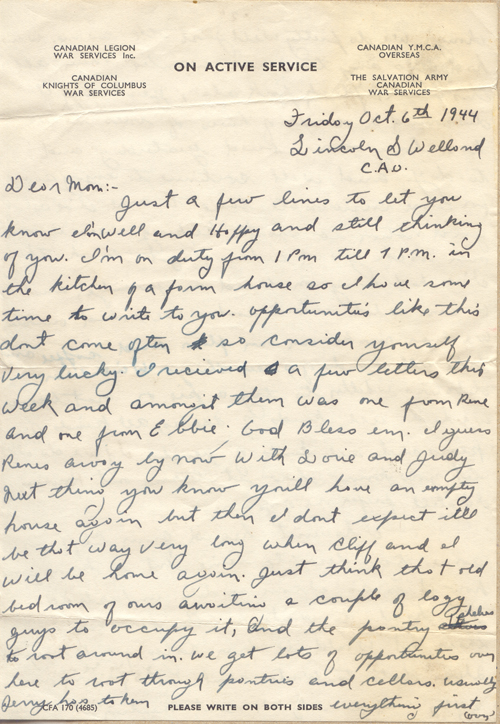 CANADIAN LEGION
WAR SERVICES Inc.
CANADIAN
KNIGHTS OF COLUMBUS
WAR SERVICES
ON ACTIVE SERVICE
CANADIAN Y.M.C.A.
OVERSEAS
THE SALVATION ARMY
CANADIAN
WAR SERVICES
Friday Oct. 6th 1944
Lincoln & Welland
C.A.O.
Dear Mom:-
Just a few lines to let you
know I'm well and Happy and still thinking
of you. I'm on duty from 1 PM till 7 P.M. in
the kitchen of a farm house so I have some
time to write to you. opportunities like this
dont come often so consider yourself
Very lucky. I recieved a few letters this
week and amongst them was one from Rene
and one from Ebbie. God Bless em. I guess
Renes away by now With Dorie and Judy
Next thing you know youll have an empty
house again but then I dont expect itll
be that way Very long when Cliff and I
Will be home again. Just think that old
bedroom of ours awaitin a couple of logy
guys to occupy it, and the pantry shelves
to root around in. we get lots of opportunities over
here to root through pantries and cellars. usually
Jerry has taken everything first
(over)
CFA 170 (4685)
PLEASE WRITE ON BOTH SIDES